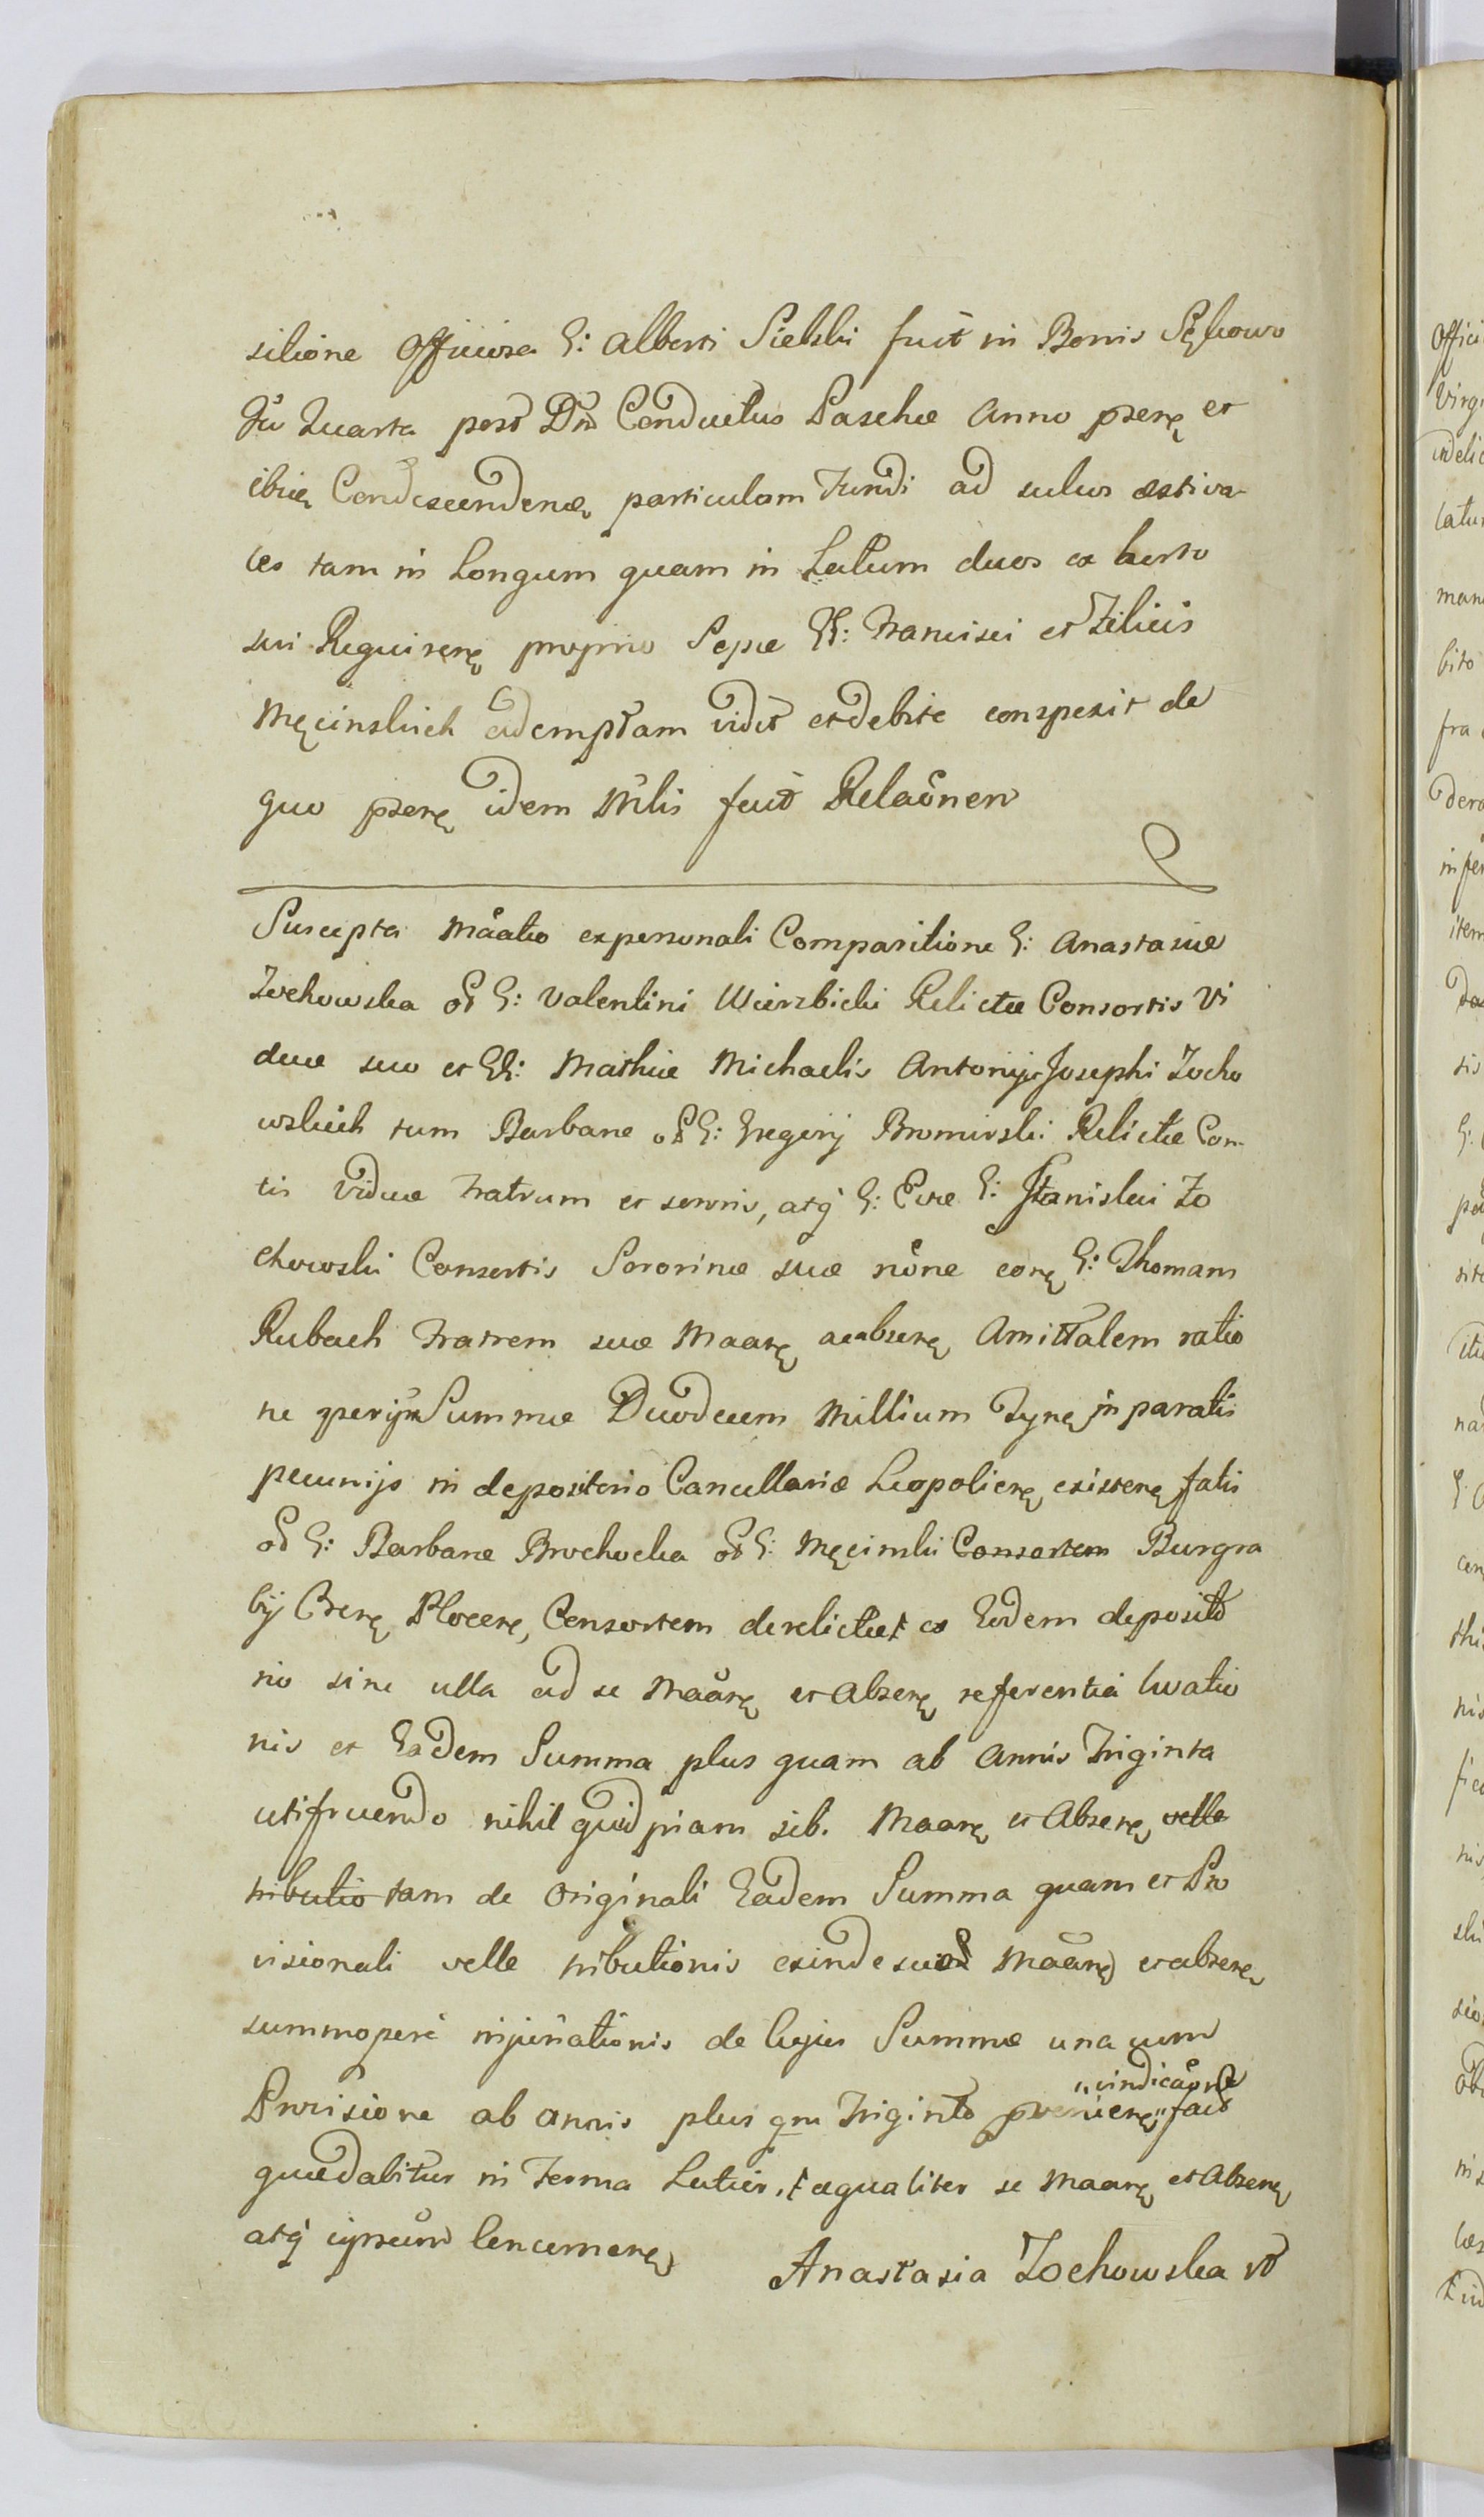 silione Officiosa G: Alberti Sielski fuit in Bonis Sękowo
Fâ Quarta post Dm̃ Conductus Paschæ Anno pseñę et
ibiq Condescendeñ particulam Fundi ad sulcos æstiva
les tam in Longum quam in Latum duos ex horto
sui Requireñ proprio Sepæ GG: Francisci et Felicis
Męcinskich ademptam vidit et debite conspexit de
quo pseñ idem Mĩlis fecit Relaõnem
Suscepta Mãatio ex personali Comparitione G: Anastasiæ
Zochowska od G: Valentini Wierzbicki Relictæ Consortis Vi
duæ suo et GG: Mathiæ Michaelis Antonij Josephi Zocho
wskich tum Barbaræ od G: Gregorij Bromirski Relictæ Con
tis Viduæ Fratrum et sororis, atq G: Evæ G: Stanislai Zo
chowski Consortis Sororinæ suæ nõne coñ G: Thomam
Rubach Fratrem suæ Maañ ac abseñ Amittalem ratio
ne Summæ Duodecem Millium Fyñ in paratis
pecunijs in depositorio Cancellariæ Leopolieñ existeñ fatis
od G: Barbaræ Brochocka od G: Męcinski Consortem Burgra
bij Creñ Ploceñ, Consortem derelictæ ex Eodem deposito
rio sine ulla ad se Maãñ et Abseñ referentia levatio
nis et Eadem Summa plus quam ab Annis Triginta
utifruendo nihil quidpiam sibi Maañ et Abseñ velle
tributio tam de Originali Eadem Summa quam et Pro
visionali velle tributionis exinde Maãñ et abseñ
summopere injuriationis de hujus Summæ una cum
"vindicaõne
Provisione ab annis plus qm Triginta provenieñ" facit
quædabitur in Termo Latius, et æqualiter se Maañ et Abseñ
atq ipseum concerneñ
Anastasia Zochowska